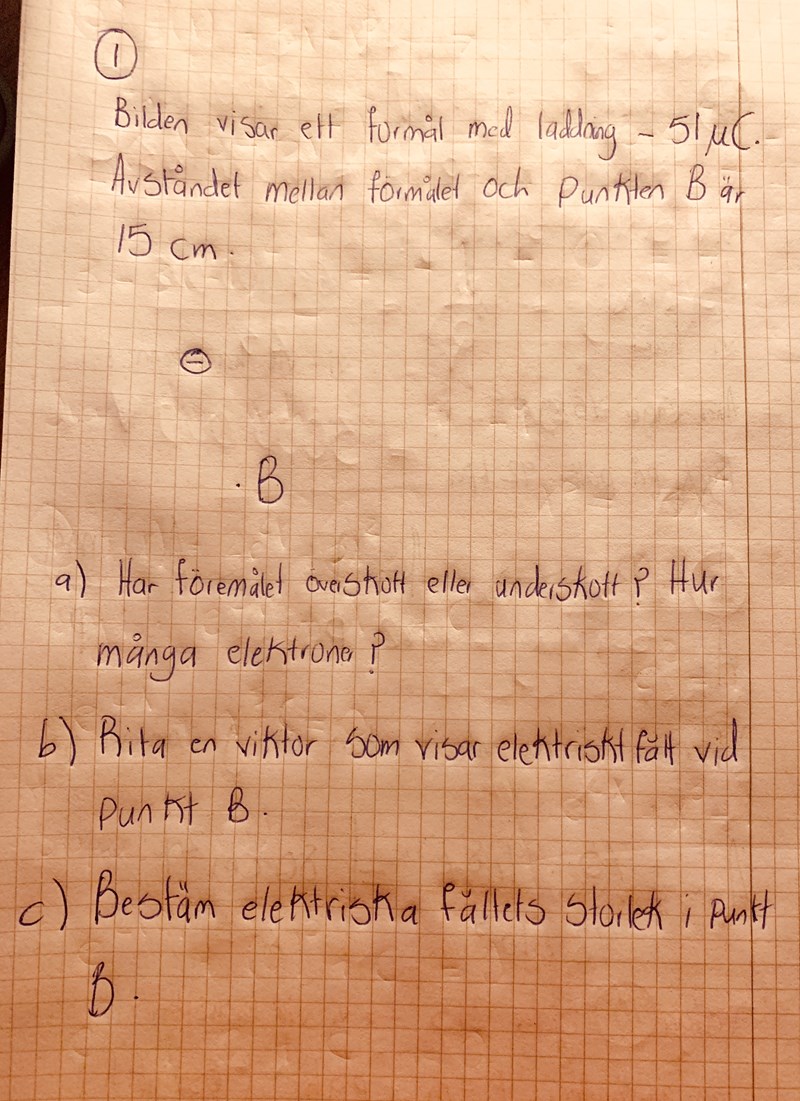 1
Bilden visar ett formål med laddning - 51 μC.
Avståndet mellan formålet och punkten B är
15 cm.
-
. B
a) Har föremålet överskott eller underskott? Hur
många elektroner?
b) Rita en viktor som visar elektriskt fält vid
punkt B.
c) Bestäm elektriska fältets storlek i punkt
B.